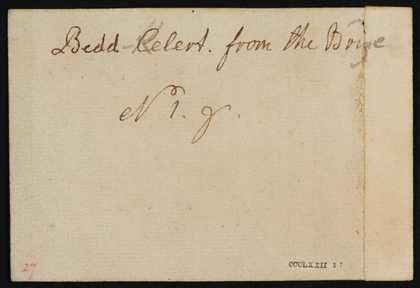 Bedd Celert. from the Bri
N 1. 
27
CCCLXXII